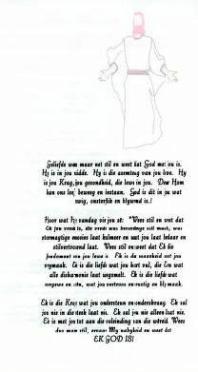 Geliefde wees maar net stil en weet dat God met jou is.
Hy is in jou midde. Hy is die asemtog van jou lewe. Hy
is jou Krag, jou gesondheid, die lewe in jou. Deur Hom
kan ons leef beweeg en bestaan. God is dit in ju wat
ewig, onsterflik en blywend is!
Hoor wat Hy vandag vir jou sê: "Wees stil en weet dat
Ek jou vrede is, die vrede wat
stormagtige laat bedaar en wat jou laat bedaar en
stilvertroued laat. Wees stil en weet dat Ek die
fondament van jou lewe is. Ek is die waarheid wat jou
vrymaak. Ek is die liefde wat jou hart vul, die Een wat
alle disharmonie laat wegsmelt. Ek is die liefde wat
en wat jou vertroue en rustig en bly maak.
Ek is die Krag wat jou ondersteun en onderskraag. Ek sal
jou nie in die steek laat nie. Ek sal jou nie alleen laat nie.
Ek is met jou tot aan die voleinding van die wêreld. Wees
dus maar stil, ervaar My nabyheid en weet dat
EK GOD IS!